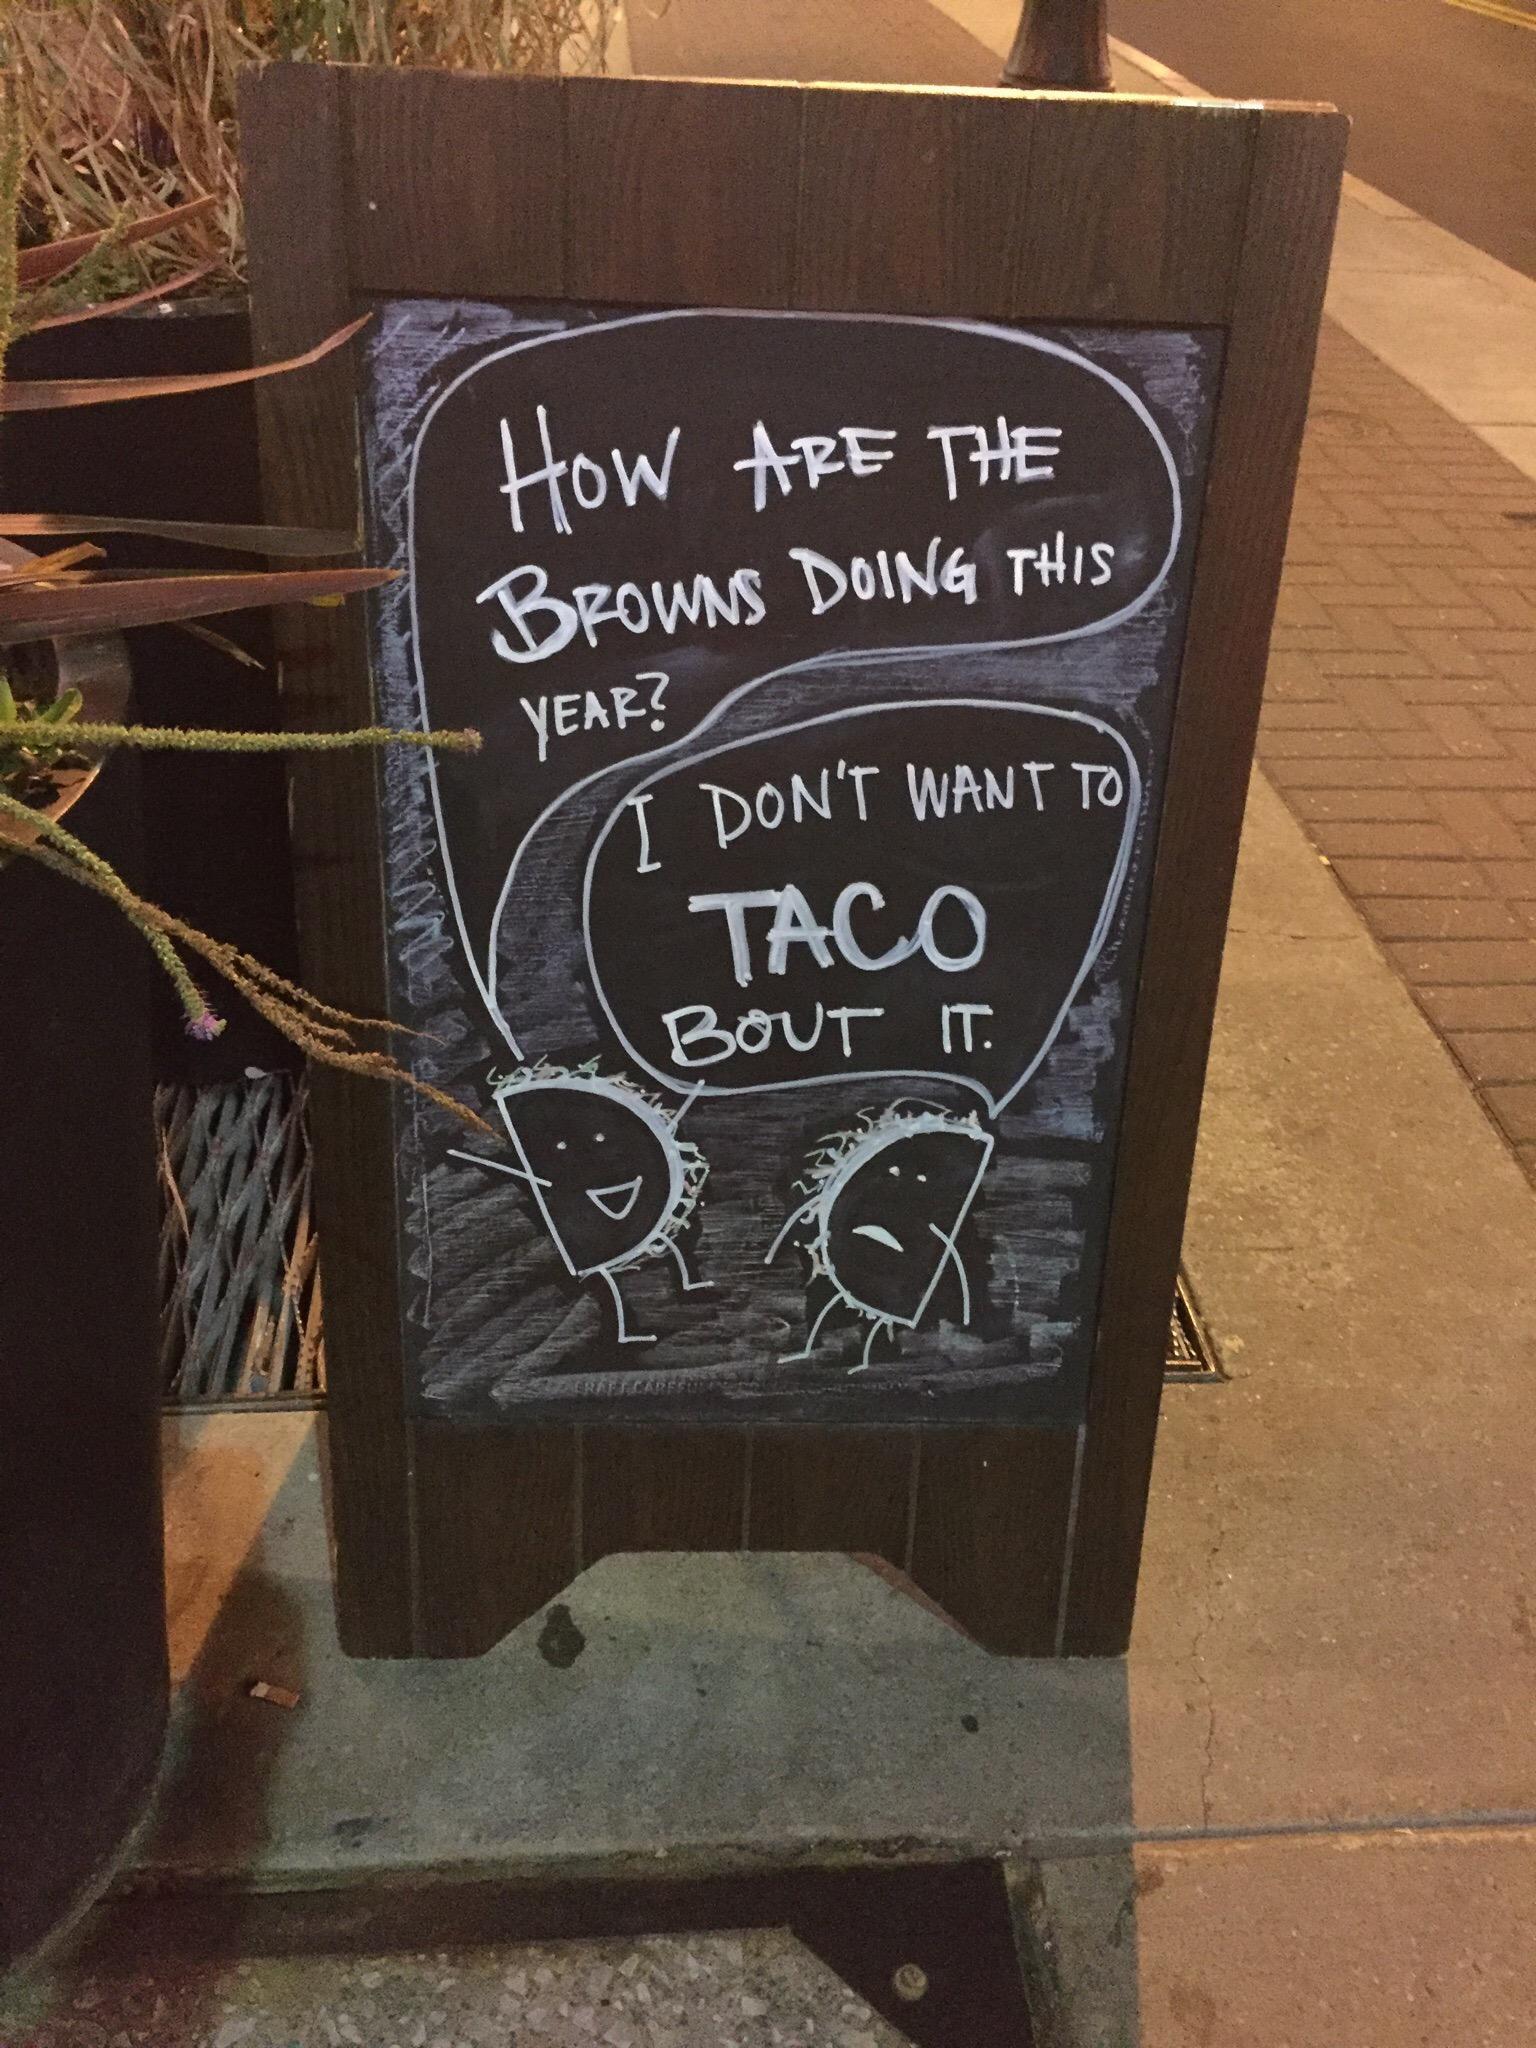 HOW ARE THE
BROWNS DOING THIS
YEAR?
I DON'T WANT TO
TACO
BOUT IT.